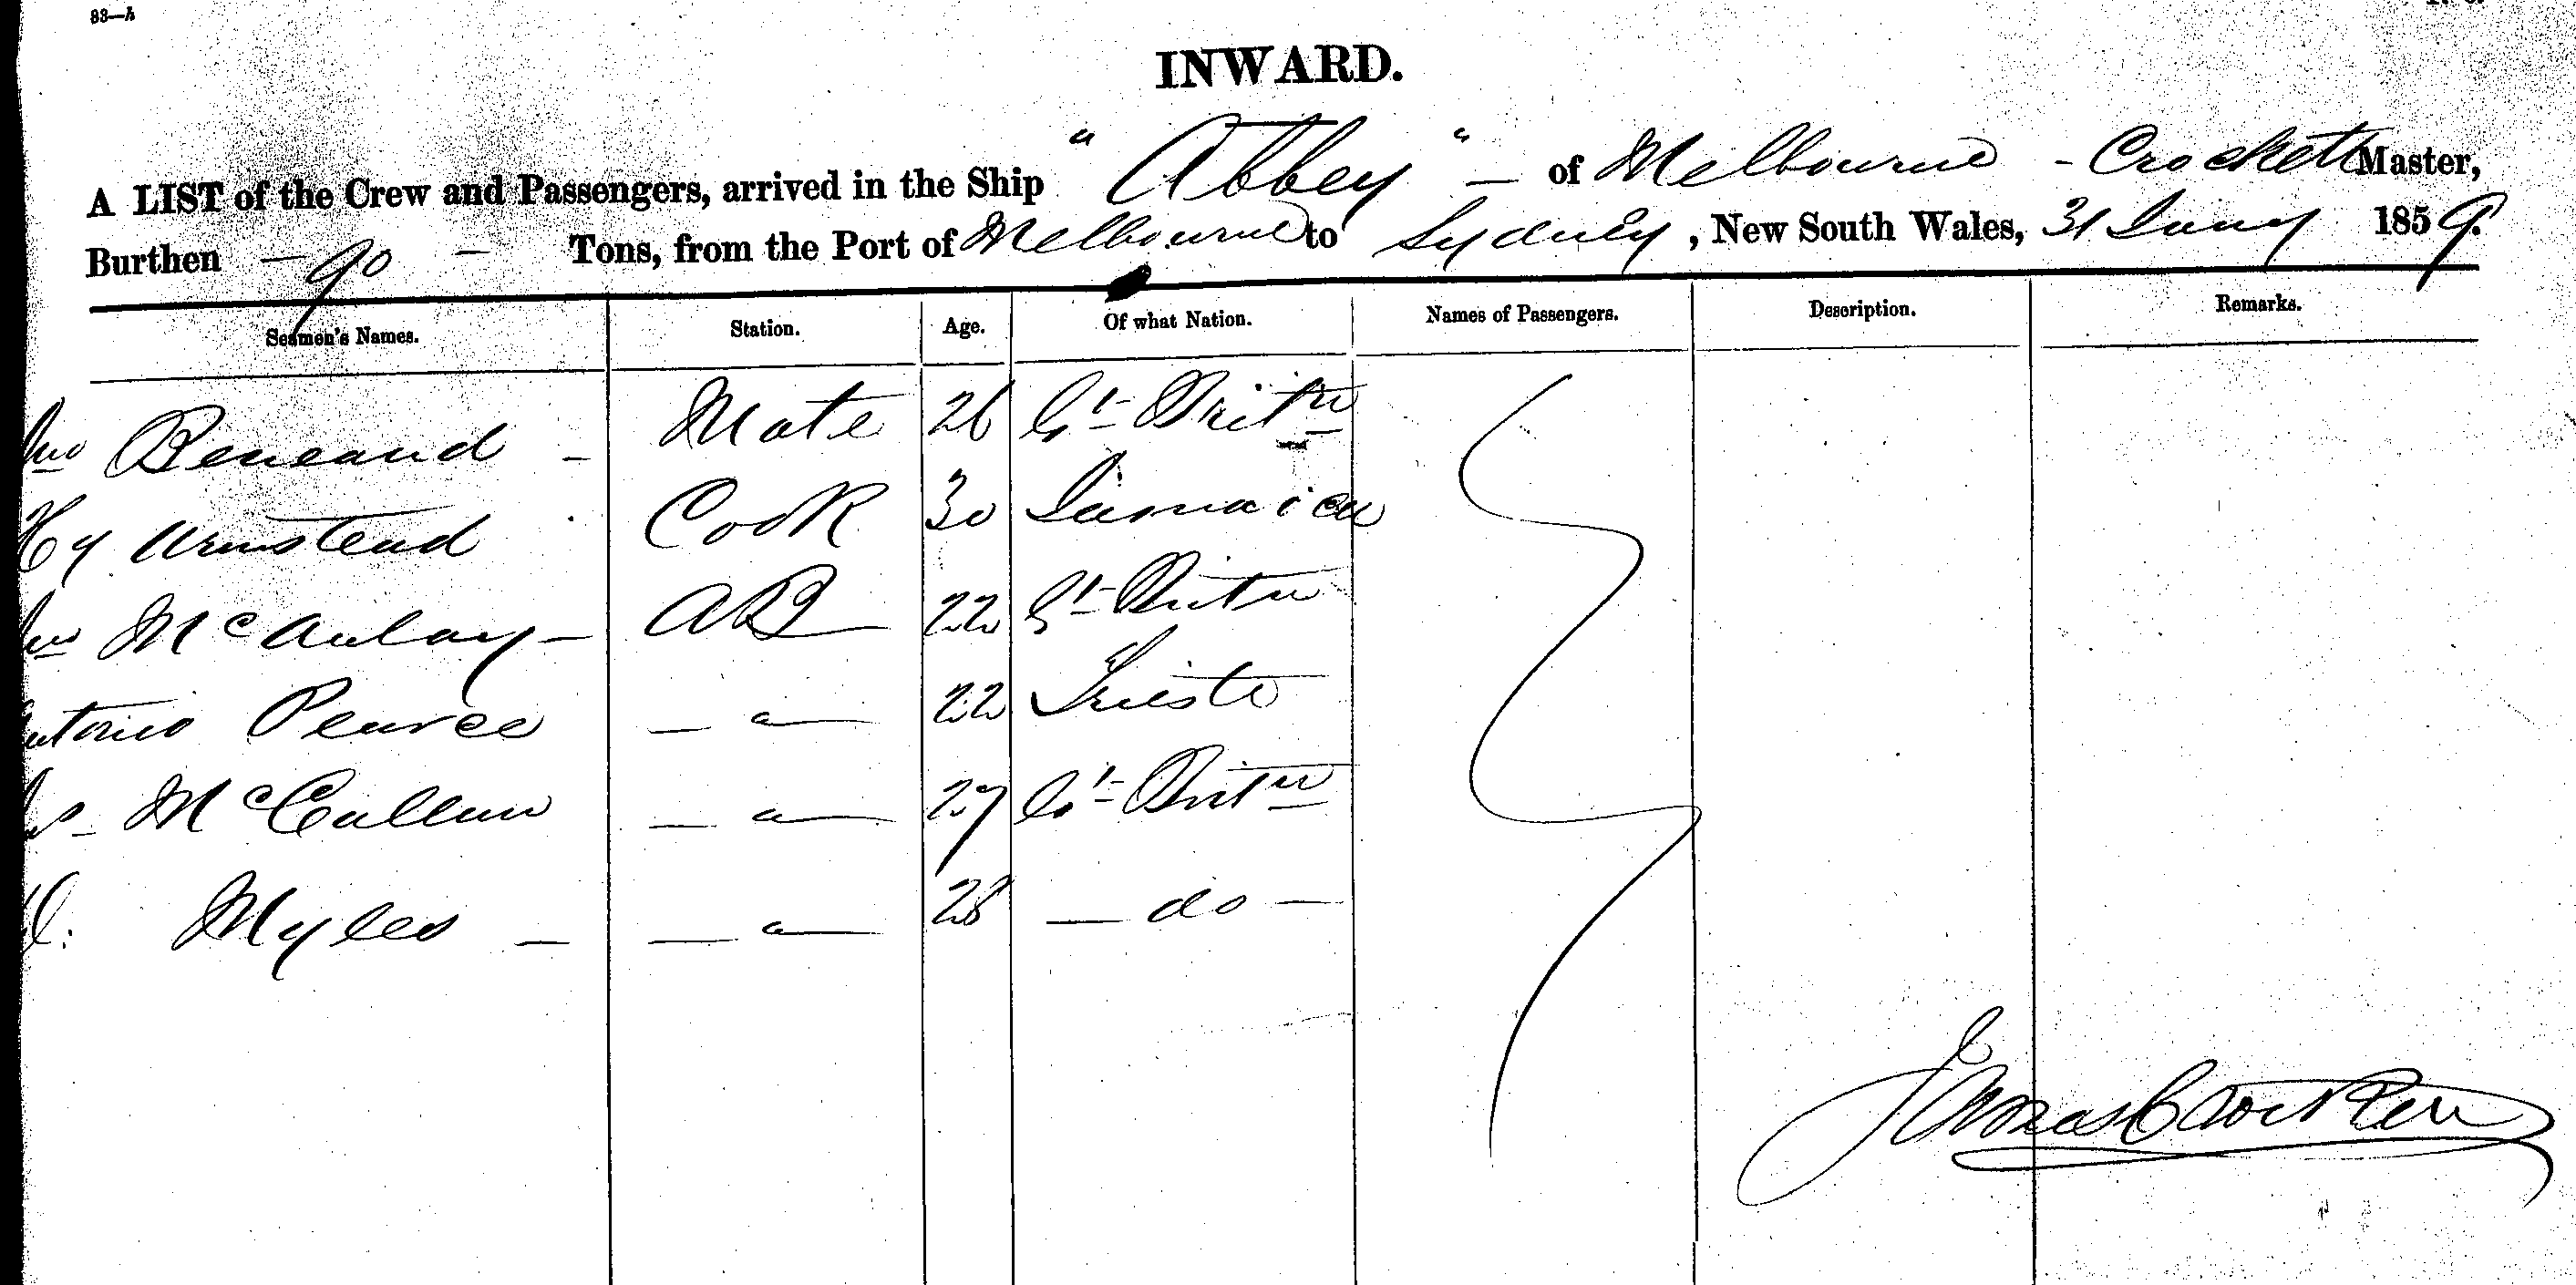 83—h
INWARD.
A LIST of the Crew and Passengers, arrived in the Ship "Abbey" — of Melbourne - Crockett Master,
Burthen — 90 — Tons, from the Port of Melbourne to Sydney, New South Wales, 31 Jany 1859.
Seamen's Names. Station. Age. Of what Nation. Names of Passengers. Description. Remarks.
Jno Beneand — Mate 26 Gt Britn
Hy Armstead Cook 30 Jamaica
Jno McAulay — AB 22 Gt Britn
Antonio Pearce — " — 22 Trieste
McCallum — " — 27 Gt Britn
Myles — — " — 28 — do —